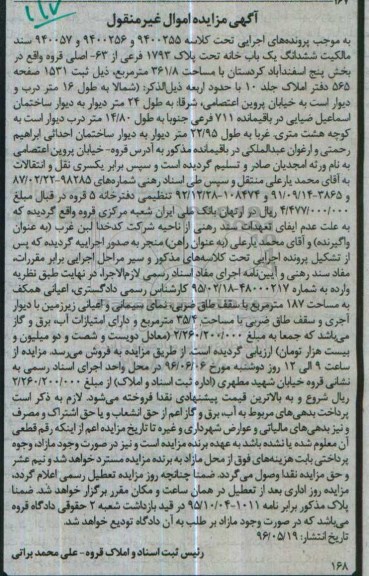 ۱۶۷
آگهی مزایده اموال غیرمنقول
به موجب پرونده‌های اجرایی تحت کلاسه ۹۴۰۰۲۵۵ و ۹۴۰۰۲۵۶ و ۹۴۰۰۵۷ سند
مالکیت ششدانگ یک باب خانه تحت پلاک ۱۷۹۳ فرعی از ۶۳- اصلی قروه واقع در
بخش پنج اسفندآباد کردستان با مساحت ۳۶۱/۸ مترمربع، ذیل ثبت ۱۵۳۱ صفحه
۵۶۵ دفتر املاک جلد ۱۰ با حدود اربعه ذیل‌الذکر: (شمالا به طول ۱۶ متر درب و
دیوار است به خیابان پروین اعتصامی، شرقا: به طول ۲۴ متر دیوار به دیوار ساختمان
اسماعیل ضیایی در باقیمانده ۷۱۱ فرعی جنوبا به طول ۱۴/۸۰ متر درب دیوار است به
کوچه هشت متری، غربا به طول ۲۲/۹۵ متر دیوار به دیوار ساختمان احداثی ابراهیم
رحمتی و ارغوان عبدالملکی در باقیمانده مذکور به آدرس قروه- خیابان پروین اعتصامی
به نام ورثه امجدیان صادر و تسلیم گردیده است و سپس برابر یکسری نقل و انتقالات
به آقای محمد یارعلی منتقل و سپس طی اسناد رهنی شماره‌های ۹۸۲۸۵-۸۷/۰۲/۲۲
و ۳۸۶۵-۹۱/۰۹/۱۴ و ۱۰۸۴۷۴-۹۲/۱۲/۲۸ تنظیمی دفترخانه ۵ قروه در قبال مبلغ
۴/۴۷۷/۰۰۰/۰۰۰ ریال در ارتهان بانک ملی ایران شعبه مرکزی قروه واقع گردیده که
به علت عدم ایفای تعهدات سند رهنی از ناحیه شرکت کدخدا لبن غرب (به عنوان
وام‌گیرنده) و آقای محمد یارعلی (به عنوان راهن) منجر به صدور اجراییه گردیده که پس
از تشکیل پرونده اجرایی تحت کلاسه‌های مذکور و سیر مراحل اجرایی برابر مقررات،
مفاد سند رهنی و آیین‌نامه اجرای مفاد اسناد رسمی لازم‌الاجرا، در نهایت طبق نظریه
وارده به شماره ۴۸۰۰۰۲۱۷-۹۵/۰۲/۱۸ کارشناس رسمی دادگستری، اعیانی همکف
به مساحت ۱۸۷ مترمربع با سقف طاق ضربی، نمای سیمانی و اعیانی زیرزمین با دیوار
آجری و سقف طاق ضربی با مساحت ۳۵/۴ مترمربع و دارای امتیازات آب، برق و گاز
می‌باشد که جمعا به مبلغ ۲/۲۶۰/۲۰۰/۰۰۰ (معادل دویست و شصت و دو میلیون و
بیست هزار تومان) ارزیابی گردیده است. از طریق مزایده به فروش می‌رسد. مزایده از
ساعت ۹ الی ۱۲ روز دوشنبه مورخ ۹۶/۰۶/۰۶ در محل واحد اجرای اسناد رسمی به
نشانی قروه خیابان شهید مطهری (اداره ثبت اسناد و املاک) از مبلغ ۲/۲۶۰/۲۰۰/۰۰۰
ریال شروع و به بالاترین قیمت پیشنهادی نقدا فروخته می‌شود. لازم به ذکر است
پرداخت بدهی‌های مربوط به آب، برق و گاز اعم از حق انشعاب و یا حق اشتراک و مصرف
و نیز بدهی‌های مالیاتی و عوارض شهرداری و غیره تا تاریخ مزایده اعم از اینکه رقم قطعی
آن معلوم شده یا نشده باشد به عهده برنده مزایده است و نیز در صورت وجود مازاد، وجوه
پرداختی بابت هزینه‌های فوق از محل مازاد به برنده مزایده مسترد خواهد شد و نیم عشر
و حق مزایده نقدا وصول می‌گردد. ضمنا چنانچه روز مزایده تعطیل رسمی اعلام گردد،
مزایده روز اداری بعد از تعطیل در همان ساعت و مکان مقرر برگزار خواهد شد. ضمنا
پلاک مذکور برابر نامه ۱۰۱۱-۹۵/۱۰/۰۴ در قید بازداشت شعبه ۲ حقوقی دادگاه قروه
می‌باشد که در صورت وجود مازاد بر طلب به آن دادگاه تودیع خواهد شد.
تاریخ انتشار: ۹۶/۰۵/۱۹
رئیس ثبت اسناد و املاک قروه- علی محمد براتی
۱۶۸